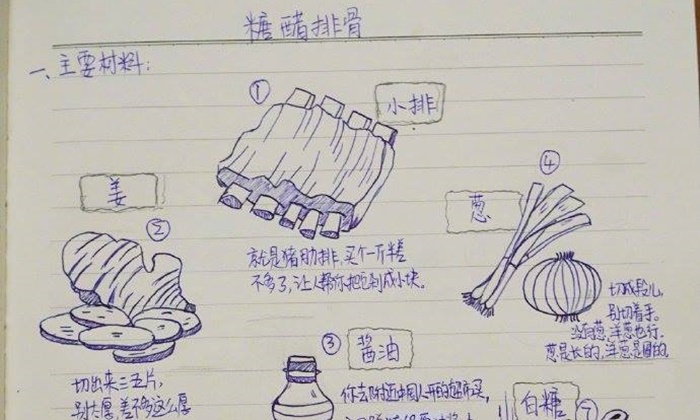 糖醋排骨
一、主要材料:
①
小排
就是猪肋排,买个一斤半差
不多了,让人帮你把它剁成小块。
姜
②
切出来三五片,
别太厚,差不多这么厚
④
葱
切成段儿,
别切着手。
没有葱,洋葱也行.
葱是长的,洋葱是圆的.
③
酱油
你去附近中国人开的超市里,
白糖